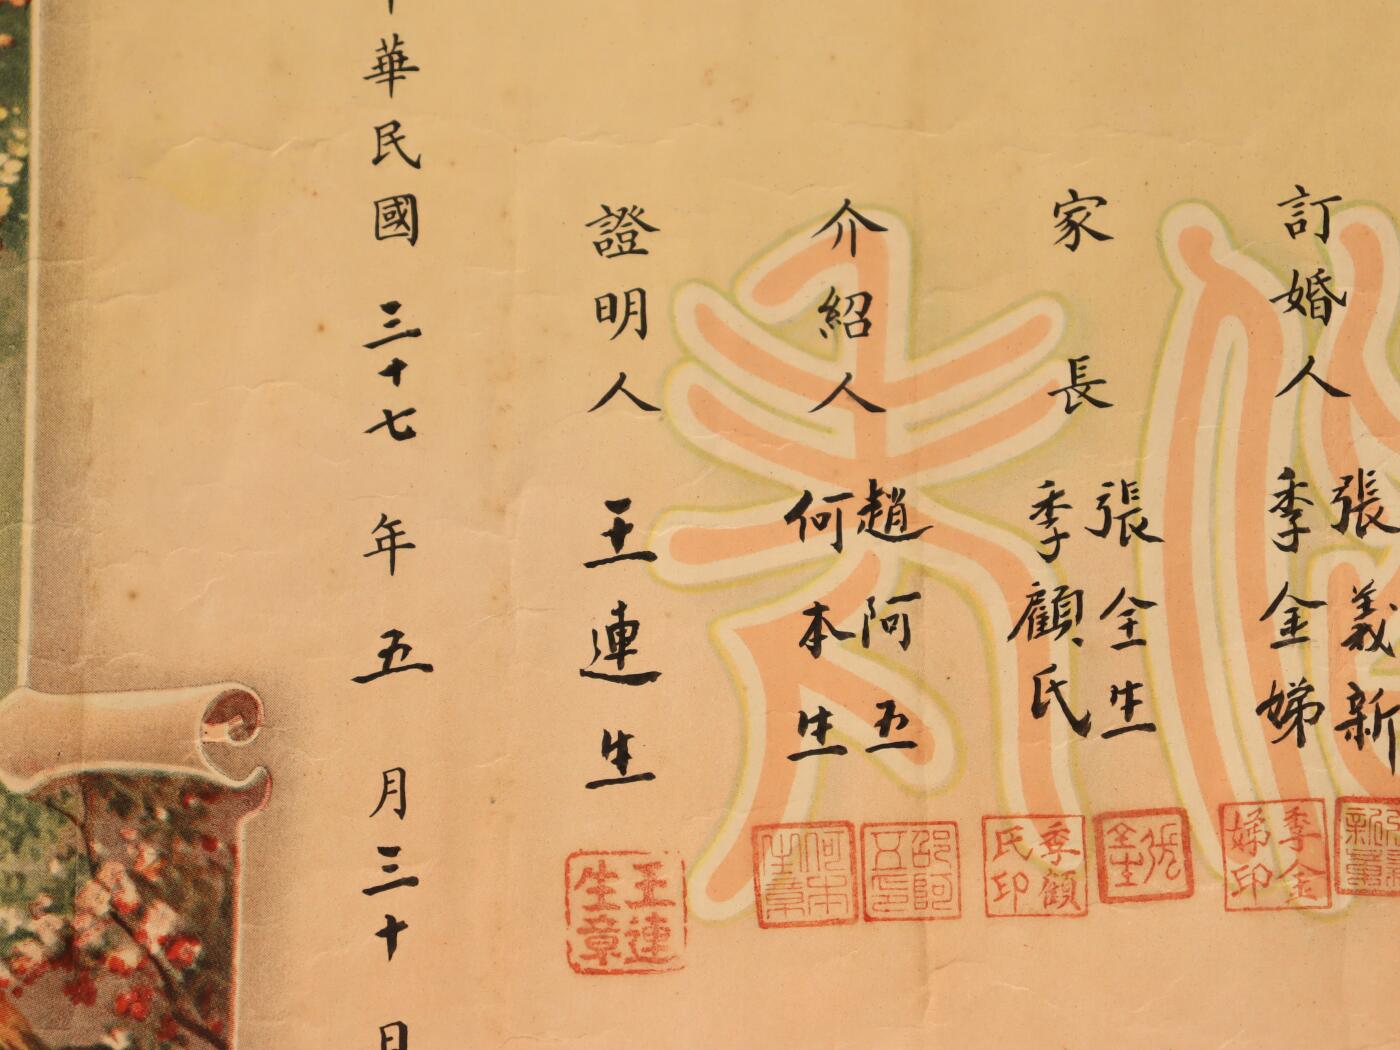 訂婚人 張義新
季金娣
家長 張全生
季顧氏
介紹人 趙阿五
何本生
證明人 王連生
中華民國三十七年五月三十日
季金娣印
張全生
季顧氏印
邵阿五印
何本生章
王連生章